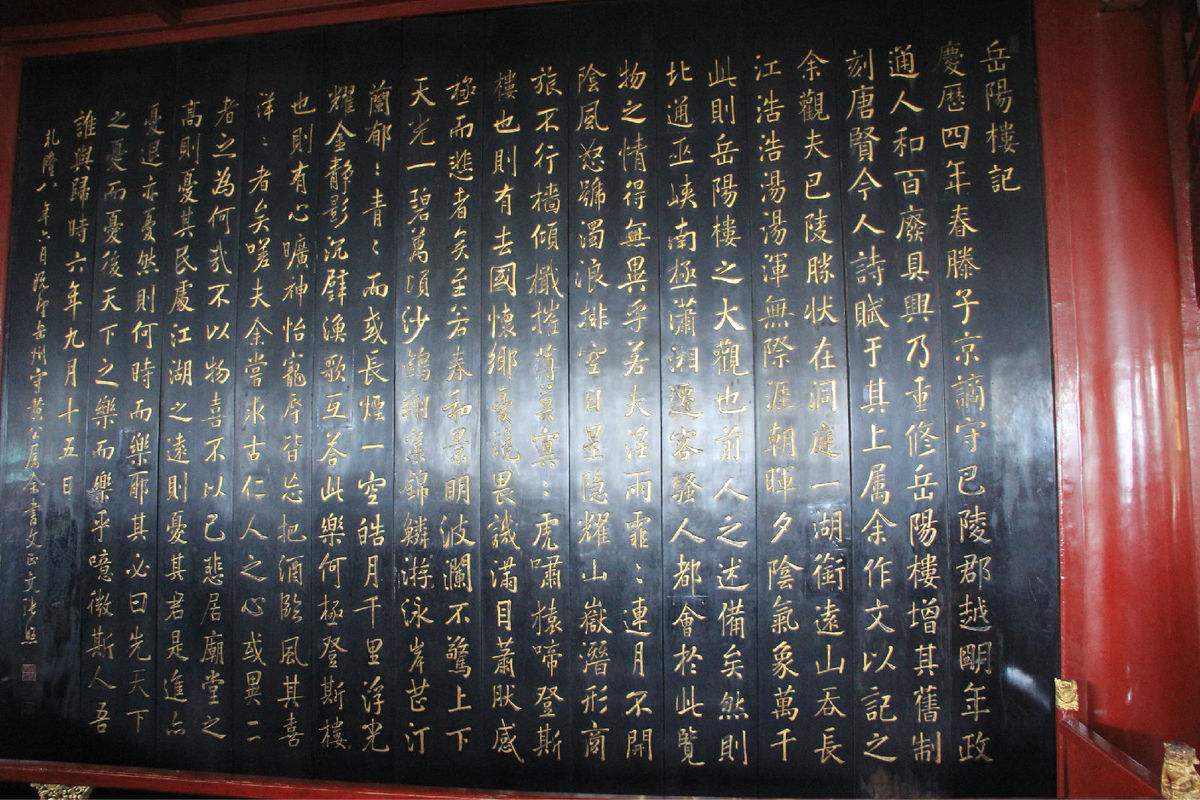 岳陽樓記
慶歷四年春滕子京謫守巴陵郡越明年政
通人和百廢具興乃重修岳陽樓增其舊制
刻唐賢今人詩賦于其上属余作文以記之
余觀夫巴陵勝状在洞庭一湖銜遠山吞長
江浩浩湯湯渾無際涯朝暉夕陰氣象萬千
此則岳陽樓之大觀也前人之述備矣然則
北通巫峽南極瀟湘遷客騷人都會於此覽
物之情得無異乎若夫淫雨霏〻連月不開
陰風怒號濁浪排空日星隐耀山嶽潛形商
旅不行檣傾檝摧薄暮冥〻虎嘯猿啼登斯
樓也則有去國懷鄉憂讒畏譏滿目蕭然感
極而悲者矣至若春和景明波瀾不驚上下
天光一碧萬頃沙鷗翔集錦鱗游泳岸芷汀
蘭郁〻青〻而或長煙一空皓月千里浮光
耀金静影沉璧漁歌互答此樂何極登斯樓
也則有心曠神怡寵辱皆忘把酒臨風其喜
洋〻者矣嗟夫余嘗求古仁人之心或異二
者之為何哉不以物喜不以己悲居廟堂之
高則憂其民處江湖之遠則憂其君是進亦
憂退亦憂然則何時而樂耶其必曰先天下
之憂而憂後天下之樂而樂乎噫微斯人吾
誰與歸時六年九月十五日
乾隆八年六月既望岳州守黄公属余書文正文張照